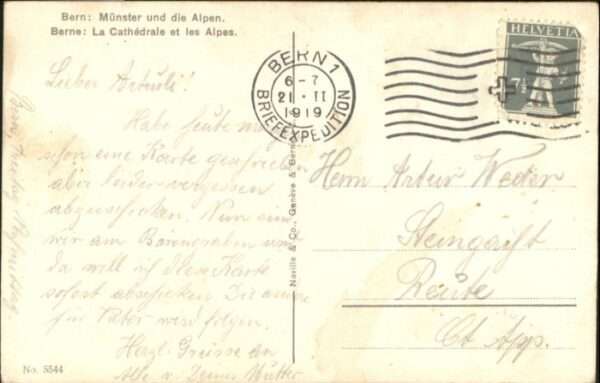 Bern: Münster und die Alpen.
Berne: La Cathédrale et les Alpes.
HELVETIA
7½
BERN 1
6-7
21·II
1919
BRIEFEXPEDITION
Lieber Arturli!
Habe heute
schon eine Karte geschrieben
aber leider vergessen
abzuschicken. Nun sind
wir am Bärengraben und
da will ich diese Karte
sofort abschicken Die andere
für Vater wird folgen.
Herzl. Grüsse an
Alle v. Deiner Mutter
Naville & Co., Genève & Berne
Herrn Artur Weder
Reute
Ct App.
No. 5544